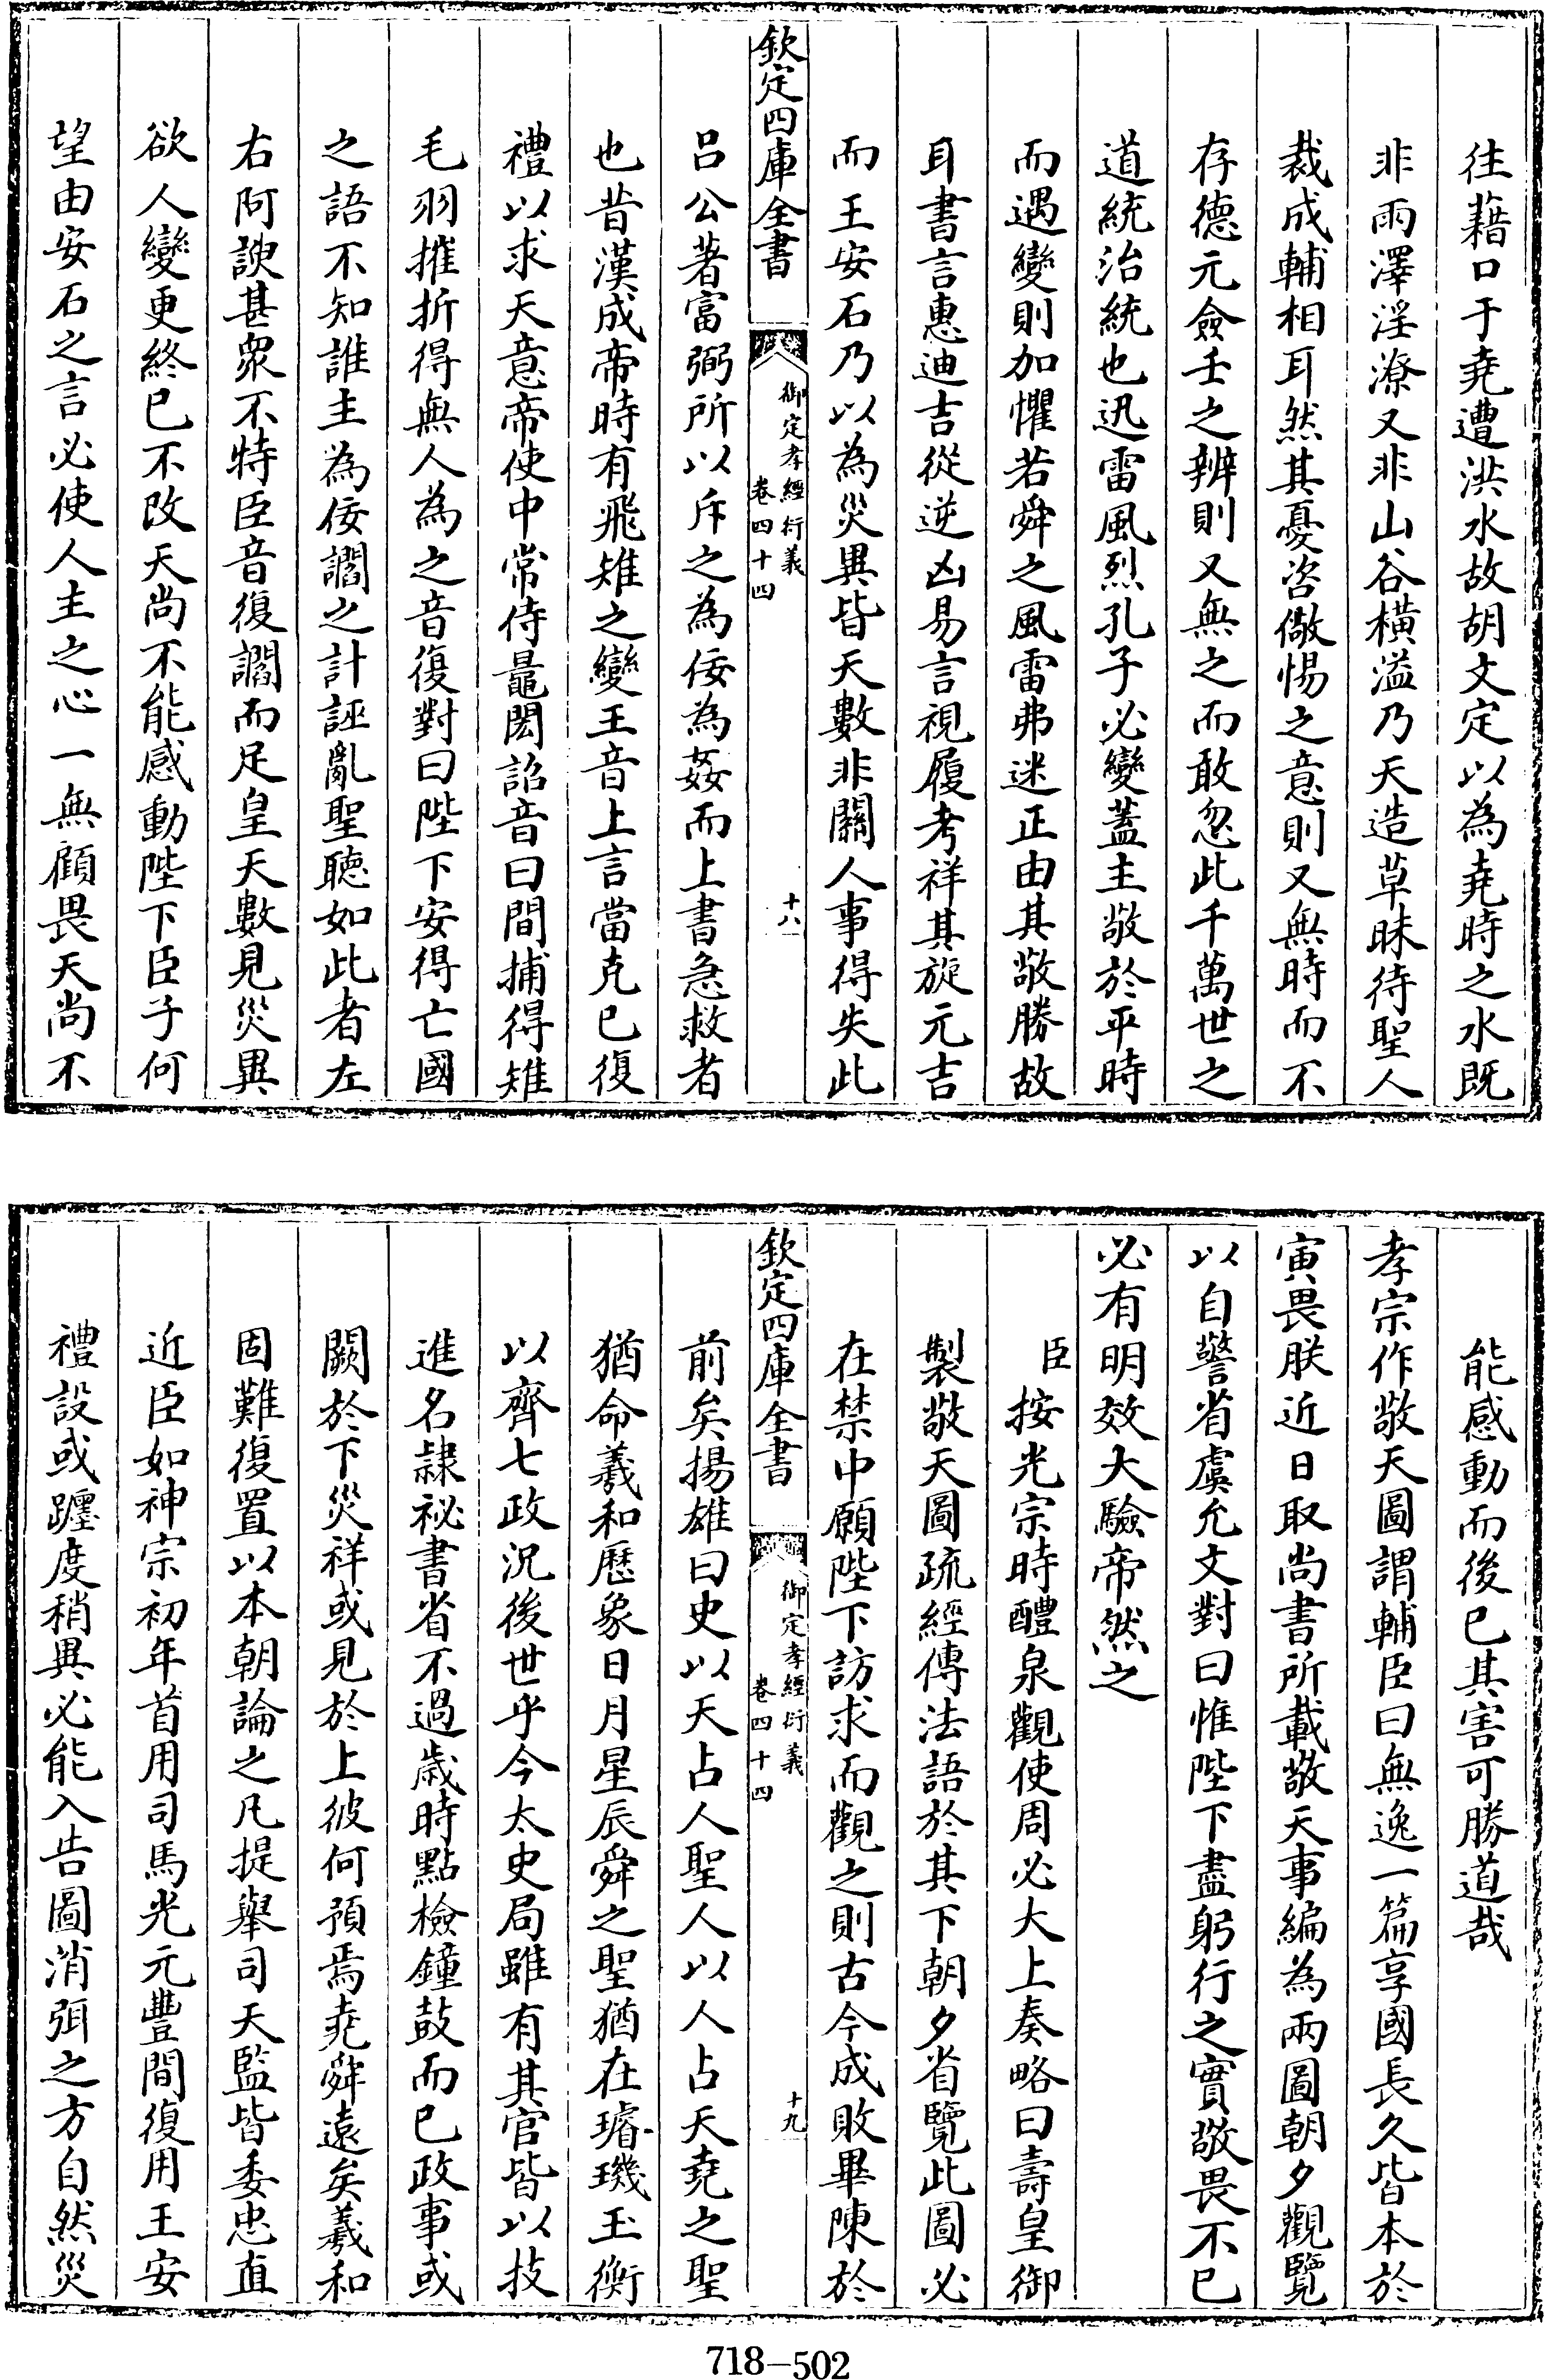 往藉口于堯遭洪水故胡文定以為堯時之水既
非雨澤淫潦又非山谷橫溢乃天造草昧待聖人
裁成輔相耳然其憂咨儆惕之意則又無時而不
存德元僉壬之辨則又無之而敢忽此千萬世之
道統治統也迅雷風烈孔子必變蓋主敬於平時
而遇變則加懼若舜之風雷弗迷正由其敬勝故
耳書言惠迪吉從逆凶易言視履考祥其旋元吉
而王安石乃以為災異皆天數非關人事得失此
欽定四庫全書
御定孝經衍義
卷四十四
十八
呂公著富弼所以斥之為佞為姦而上書急救者
也昔漢成帝時有飛雉之變王音上言當克己復
禮以求天意帝使中常侍鼂閎詔音曰間捕得雉
毛羽摧折得無人為之音復對曰陛下安得亡國
之語不知誰主為佞讇之計誣亂聖聽如此者左
右阿諛甚眾不特臣音復讇而足皇天數見災異
欲人變更終已不改天尚不能感動陛下臣子何
望由安石之言必使人主之心一無顧畏天尚不
能感動而後已其害可勝道哉
孝宗作敬天圖謂輔臣曰無逸一篇享國長久皆本於
寅畏朕近日取尚書所載敬天事編為兩圖朝夕觀覽
以自警省虞允文對曰惟陛下盡躬行之實敬畏不已
必有明效大驗帝然之
臣按光宗時醴泉觀使周必大上奏略曰壽皇御
製敬天圖疏經傳法語於其下朝夕省覽此圖必
在禁中願陛下訪求而觀之則古今成敗畢陳於
欽定四庫全書
御定孝經衍義
卷四十四
十九
前矣揚雄曰史以天占人聖人以人占天堯之聖
猶命羲和歷象日月星辰舜之聖猶在璿璣玉衡
以齊七政況後世乎今太史局雖有其官皆以技
進名隸祕書省不過歲時點檢鐘鼓而已政事或
闕於下災祥或見於上彼何預焉堯舜遠矣羲和
固難復置以本朝論之凡提舉司天監皆委忠直
近臣如神宗初年首用司馬光元豐間復用王安
禮設或躔度稍異必能入告圖消弭之方自然災
718—502